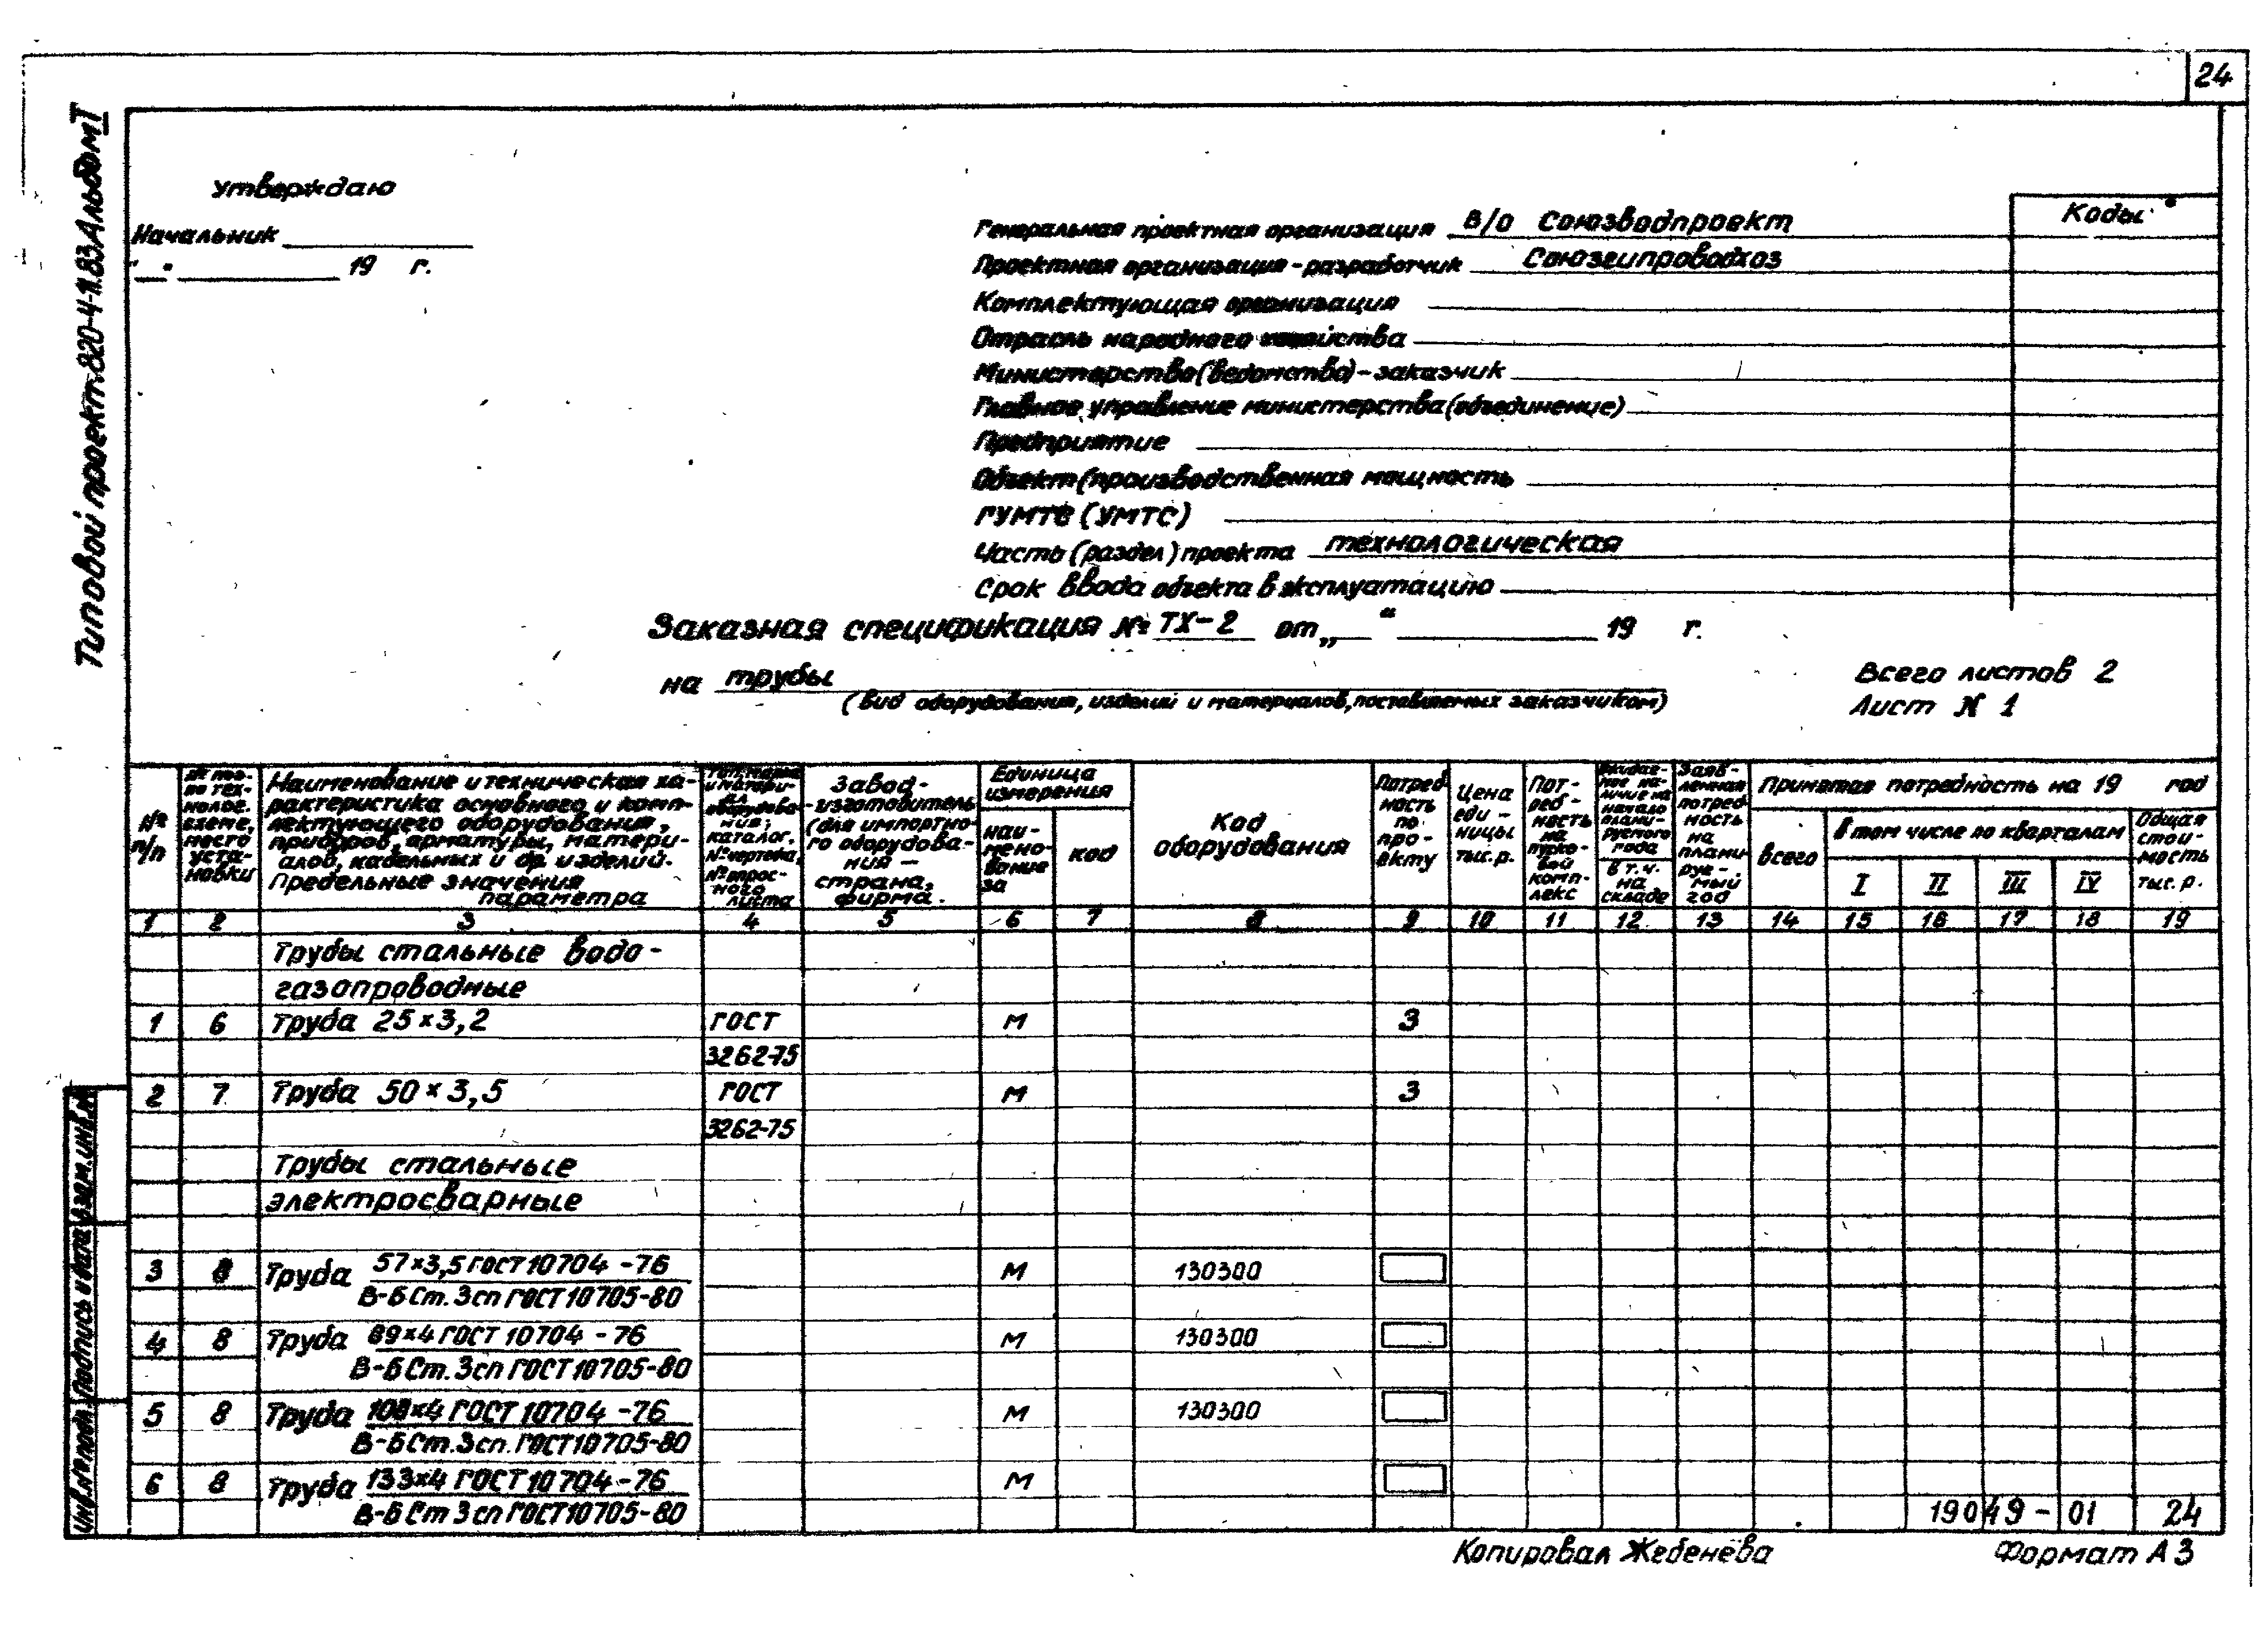 24
Типовой проект 820-4-11.83 Альбом I
Утверждаю
Начальник
" " 19 г.
Коды
Генеральная проектная организация В/О Союзводпроект
Проектная организация-разработчик Союзгипроводхоз
Комплектующая организация
Отрасль народного хозяйства
Министерство (ведомство)-заказчик
Главное управление министерства (объединение)
Предприятие
Объект (производственная мощность
ГУМТС (УМТС)
Часть (раздел) проекта технологическая
Срок ввода объекта в эксплуатацию
Заказная спецификация № ТХ-2 от „ “ 19 г.
на трубы
(вид оборудования, изделий и материалов, поставляемых заказчиком)
Всего листов 2
Лист N 1
№ п/п
№ поз. по технолог. схеме, место установки
Наименование и техническая ха-
рактеристика основного и комп-
лектующего оборудования,
приборов, арматуры, матери-
алов, кабельных и др. изделий.
Предельные значения
параметра
Тип, марка и материал оборудования; каталог. № чертежа, № опросного листа
Завод-
-изготовитель
(для импортно-
го оборудова-
ния -
страна,
фирма.
Единица
измерения
наи-
мено-
вание
за
код
Код
оборудования
Потреб
ность
по
про-
екту
Цена
еди-
ницы
тыс. р.
Пот-
реб-
ность
на
пуско-
вой
комп-
лекс
Ожидае-
мое на-
личие на
начало
плани-
руемого
года
в т.ч.
на
складе
Заяв-
ленная
потреб
ность
на
плани
руе-
мый
год
Принятая потребность на 19 год
всего
В том числе по кварталам
I II III IV
Общая
стои-
мость
тыс. р.
1 2 3 4 5 6 7 8 9 10 11 12 13 14 15 16 17 18 19
Трубы стальные водо-
газопроводные
1 6 Труба 25×3,2 ГОСТ м 3
3262-75
2 7 Труба 50×3,5 ГОСТ м 3
3262-75
Трубы стальные
электросварные
3 8 Труба 57×3,5 ГОСТ 10704-76 м 130300
В-Б Ст. 3сп ГОСТ 10705-80
4 8 Труба 89×4 ГОСТ 10704-76 м 130300
В-Б Ст. 3сп ГОСТ 10705-80
5 8 Труба 108×4 ГОСТ 10704-76 м 130300
В-Б Ст. 3сп. ГОСТ 10705-80
6 8 Труба 133×4 ГОСТ 10704-76 м
В-Б Ст 3сп ГОСТ 10705-80
Инв.№ подл. Подпись и дата Взам.инв.№
19049-01 24
Копировал Жебенёва
Формат А3